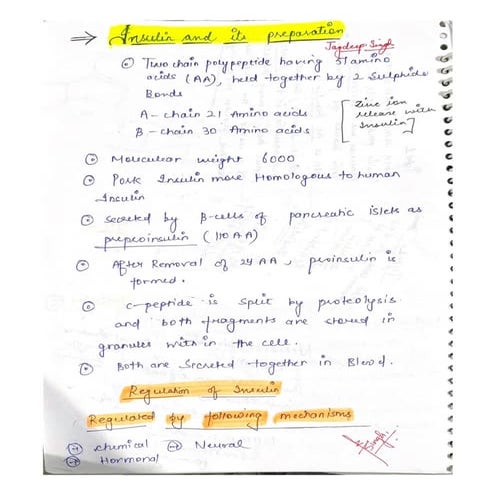 ⇒ Insulin and its preparation
Jagdeep Singh
⊙ Two chain polypeptide having 51 amino
acids (AA), held together by 2 Sulphide
Bonds
A- chain 21 Amino acids
B - chain 30 Amino acids
[Zinc ion
release with
Insulin]
⊙ Moleculear weight 6000
⊙ Pork Insulin more Homologous to human
Insulin
⊙ Secreted by β-cells of pancreatic islets as
preproinsulin (110 AA)
⊙ After Removal of 24 AA, proinsulin is
formed.
⊙ c-peptide is split by proteolysis
and both fragments are stored in
granules with in the cell.
⊙ Both are Secreted together in Blood.
Regulation of Insulin
Regulated by following mechanisms
→ chemical → Neural
→ Hormonal
Singh